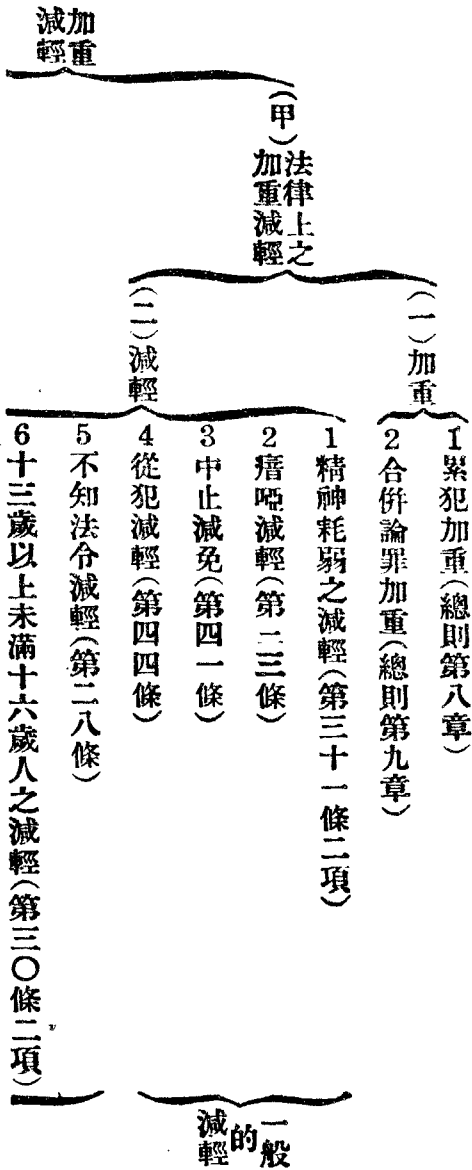 加重
減輕
(甲)法律上之
加重減輕
(一)加重
1累犯加重(總則第八章)
2合併論罪加重(總則第九章)
(二)減輕
1精神耗弱之減輕(第三十一條二項)
2瘖啞減輕(第二三條)
3中止減免(第四一條)
4從犯減輕(第四四條)
5不知法令減輕(第二八條)
6十三歲以上未滿十六歲人之減輕(第三〇條二項)
一般
的
減輕